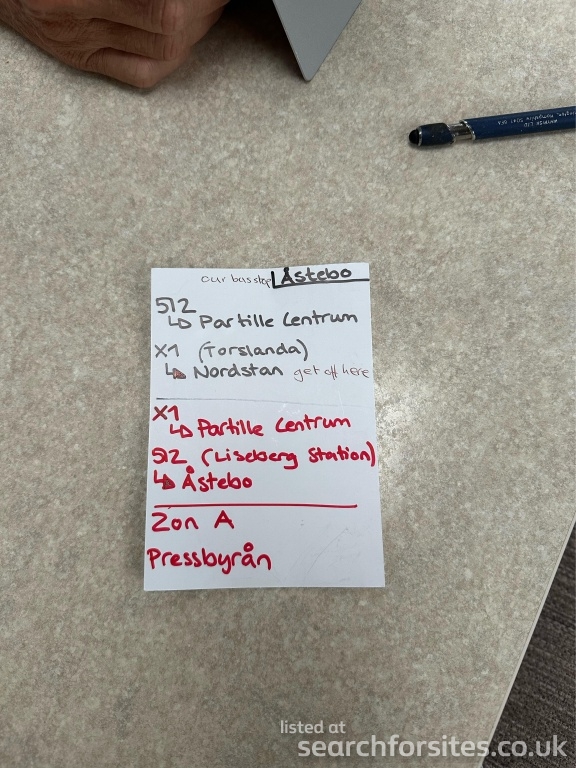 our bus stop Åstebo
512
↳ Partille Centrum
X1 (Torslanda)
↳ Nordstan get off here
X1
↳ Partille Centrum
512 (Liseberg Station)
↳ Åstebo
Zon A
Pressbyrån
listed at
searchforsites.co.uk